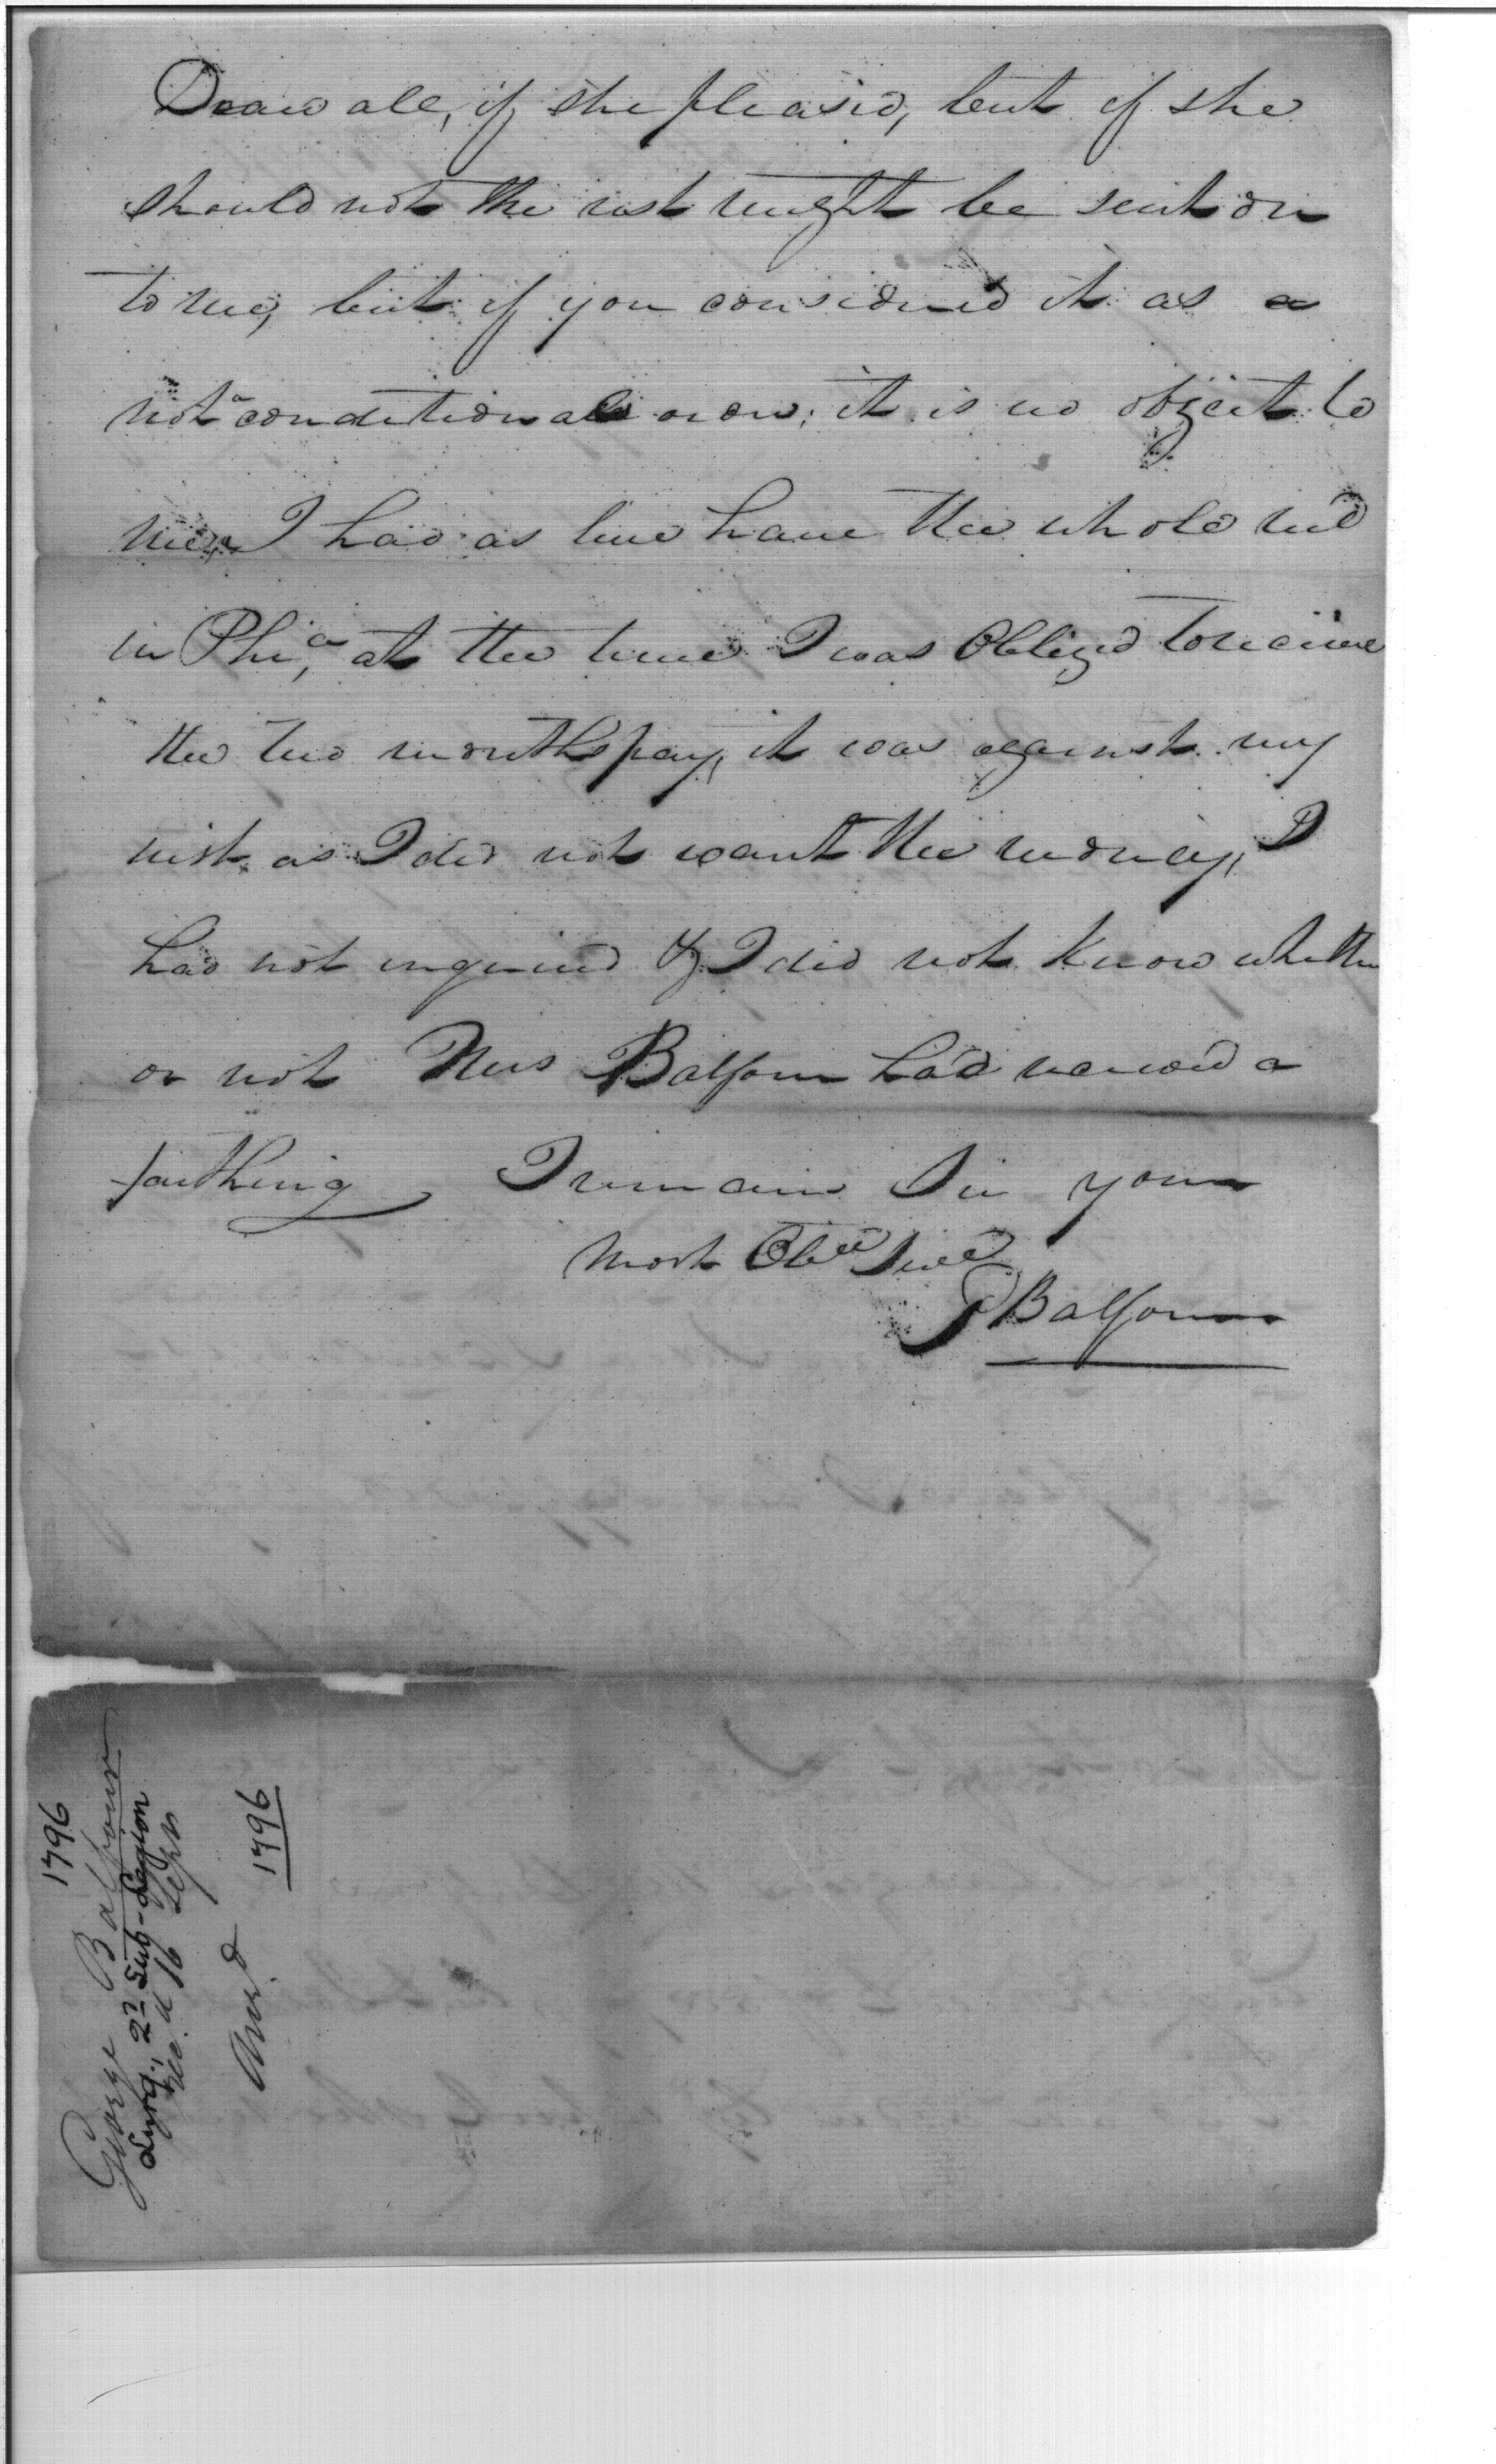 Draw all, if she pleased, but if she
should not the rest might be sent on
to me, but if you considered it as a
not a conditional order; it is no object to
me, I had as live have the whole
in Phi,a at the time I was Obliged to receive
the two months pay, it was against my
wish as I did not want the money, I
had not inquired & I did not know whether
or not Mrs Balfour had received a
farthing, I remain Sir your
Most Obt Servt
G Balfour
1796
George Balfour
Surg., 2d Sub-Legion
Rec.d 16 Sepr
Ans.d 1796